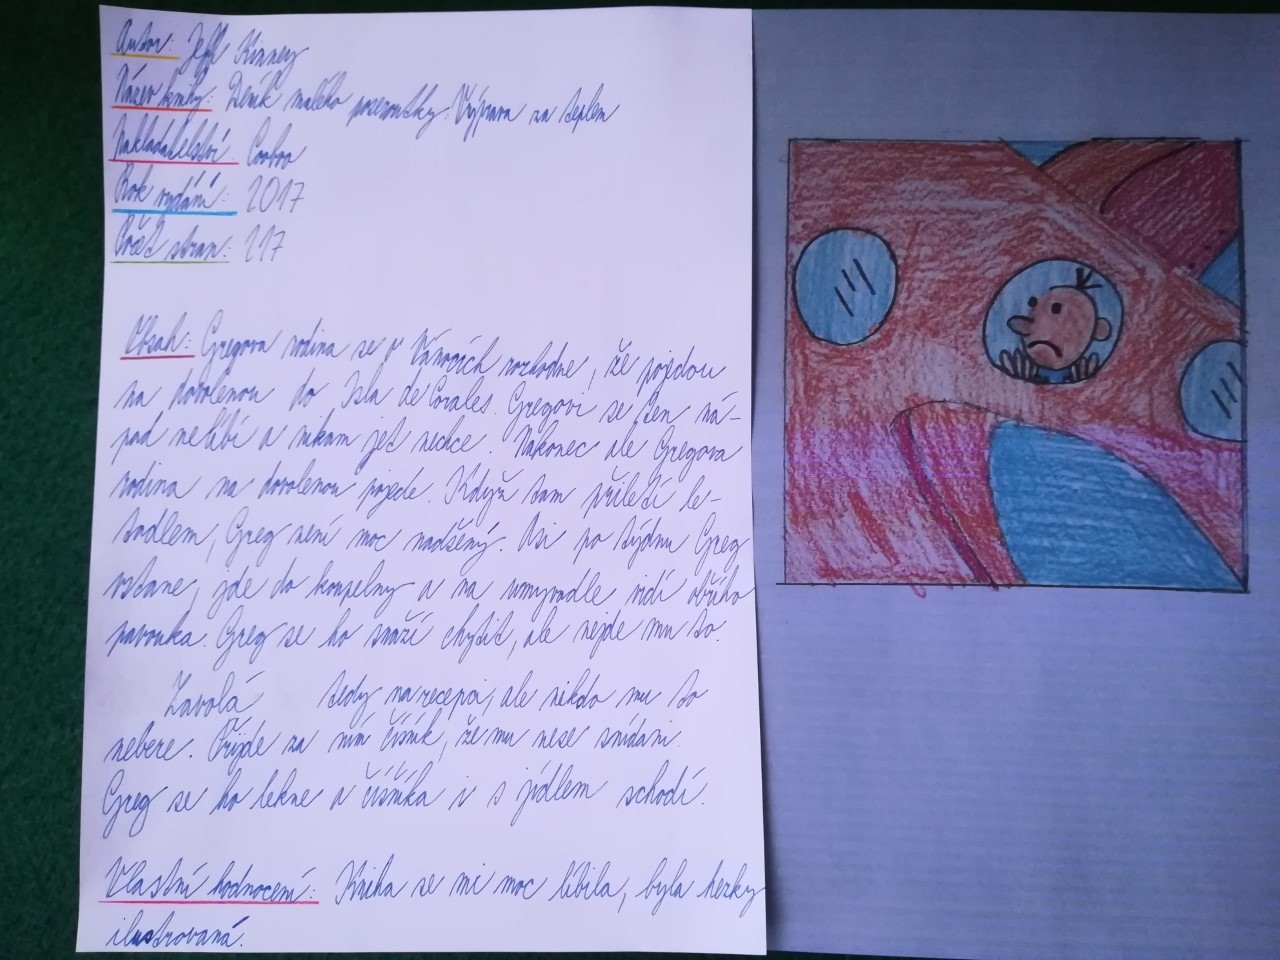 Autor: Jeff Kinney
Název knihy: Deník malého poseroutky: Výprava za teplem
Nakladatelství: CooBoo
Rok vydání: 2017
Počet stran: 217
Obsah: Gregova rodina se o Vánocích rozhodne, že pojedou
na dovolenou do Isla de Corales. Gregovi se ten ná-
pad nelíbí a nikam jet nechce. Nakonec ale Gregova
rodina na dovolenou pojede. Když tam přiletí le-
tadlem, Greg není moc nadšený. Asi po týdnu Greg
vstane, jde do koupelny a na umyvadle vidí obřího
pavouka. Greg se ho snaží chytit, ale nejde mu to.
Zavolá tedy na recepci, ale nikdo mu to
nebere. Přijde za ním číšník, že mu nese snídani.
Greg se ho lekne a číšníka i s jídlem schodí.
Vlastní hodnocení: Kniha se mi moc líbila, byla hezky
ilustrovaná.